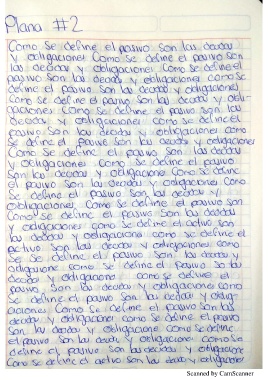 Plana #2
Como se define el pasivo Son las deudas
y obligaciones Como se define el pasivo son
las deudas y obligaciones Como se define el
pasivo Son las deudas y obligaciones como se
define el pasivo Son las deudas y obligaciones
Como se define el pasivo Son las deudas y obli-
gaciones Como se define el pasivo Son las
deudas y obligaciones como se define el
pasivo Son las deudas y obligaciones como
se define el pasivo Son las deudas y obligaciones
Como se define el pasivo Son las deudas
y obligaciones Como se define el pasivo
Son las deudas y obligaciones Como se define
el pasivo Son las deudas y obligaciones Como
se define el pasivo Son las deudas y
obligaciones Como se define el pasivo son
Como se define el pasivo Son las deudas
y obligaciones como se define el activo son
las deudas y obligaciones como se define el
activo Son las deudas y obligaciones como
se define el pasivo Son las deudas y
obligacione como se define el pasivo So las
deudas y obligacione como se define el
pasivo Son las deudas y obligaciones como
se define el pasivo Son las deudas y oblig-
aciones Como se define el pasivo Son las
deudas y obligaciones como se define el pasivo
Son las deudas y obligacione como se define
el pasivo Son las deudas y obligaciones Como se
define el pasivo Son las deudas y obligaciones
como se define el activo Son las deudas y obligaciones
Scanned by CamScanner